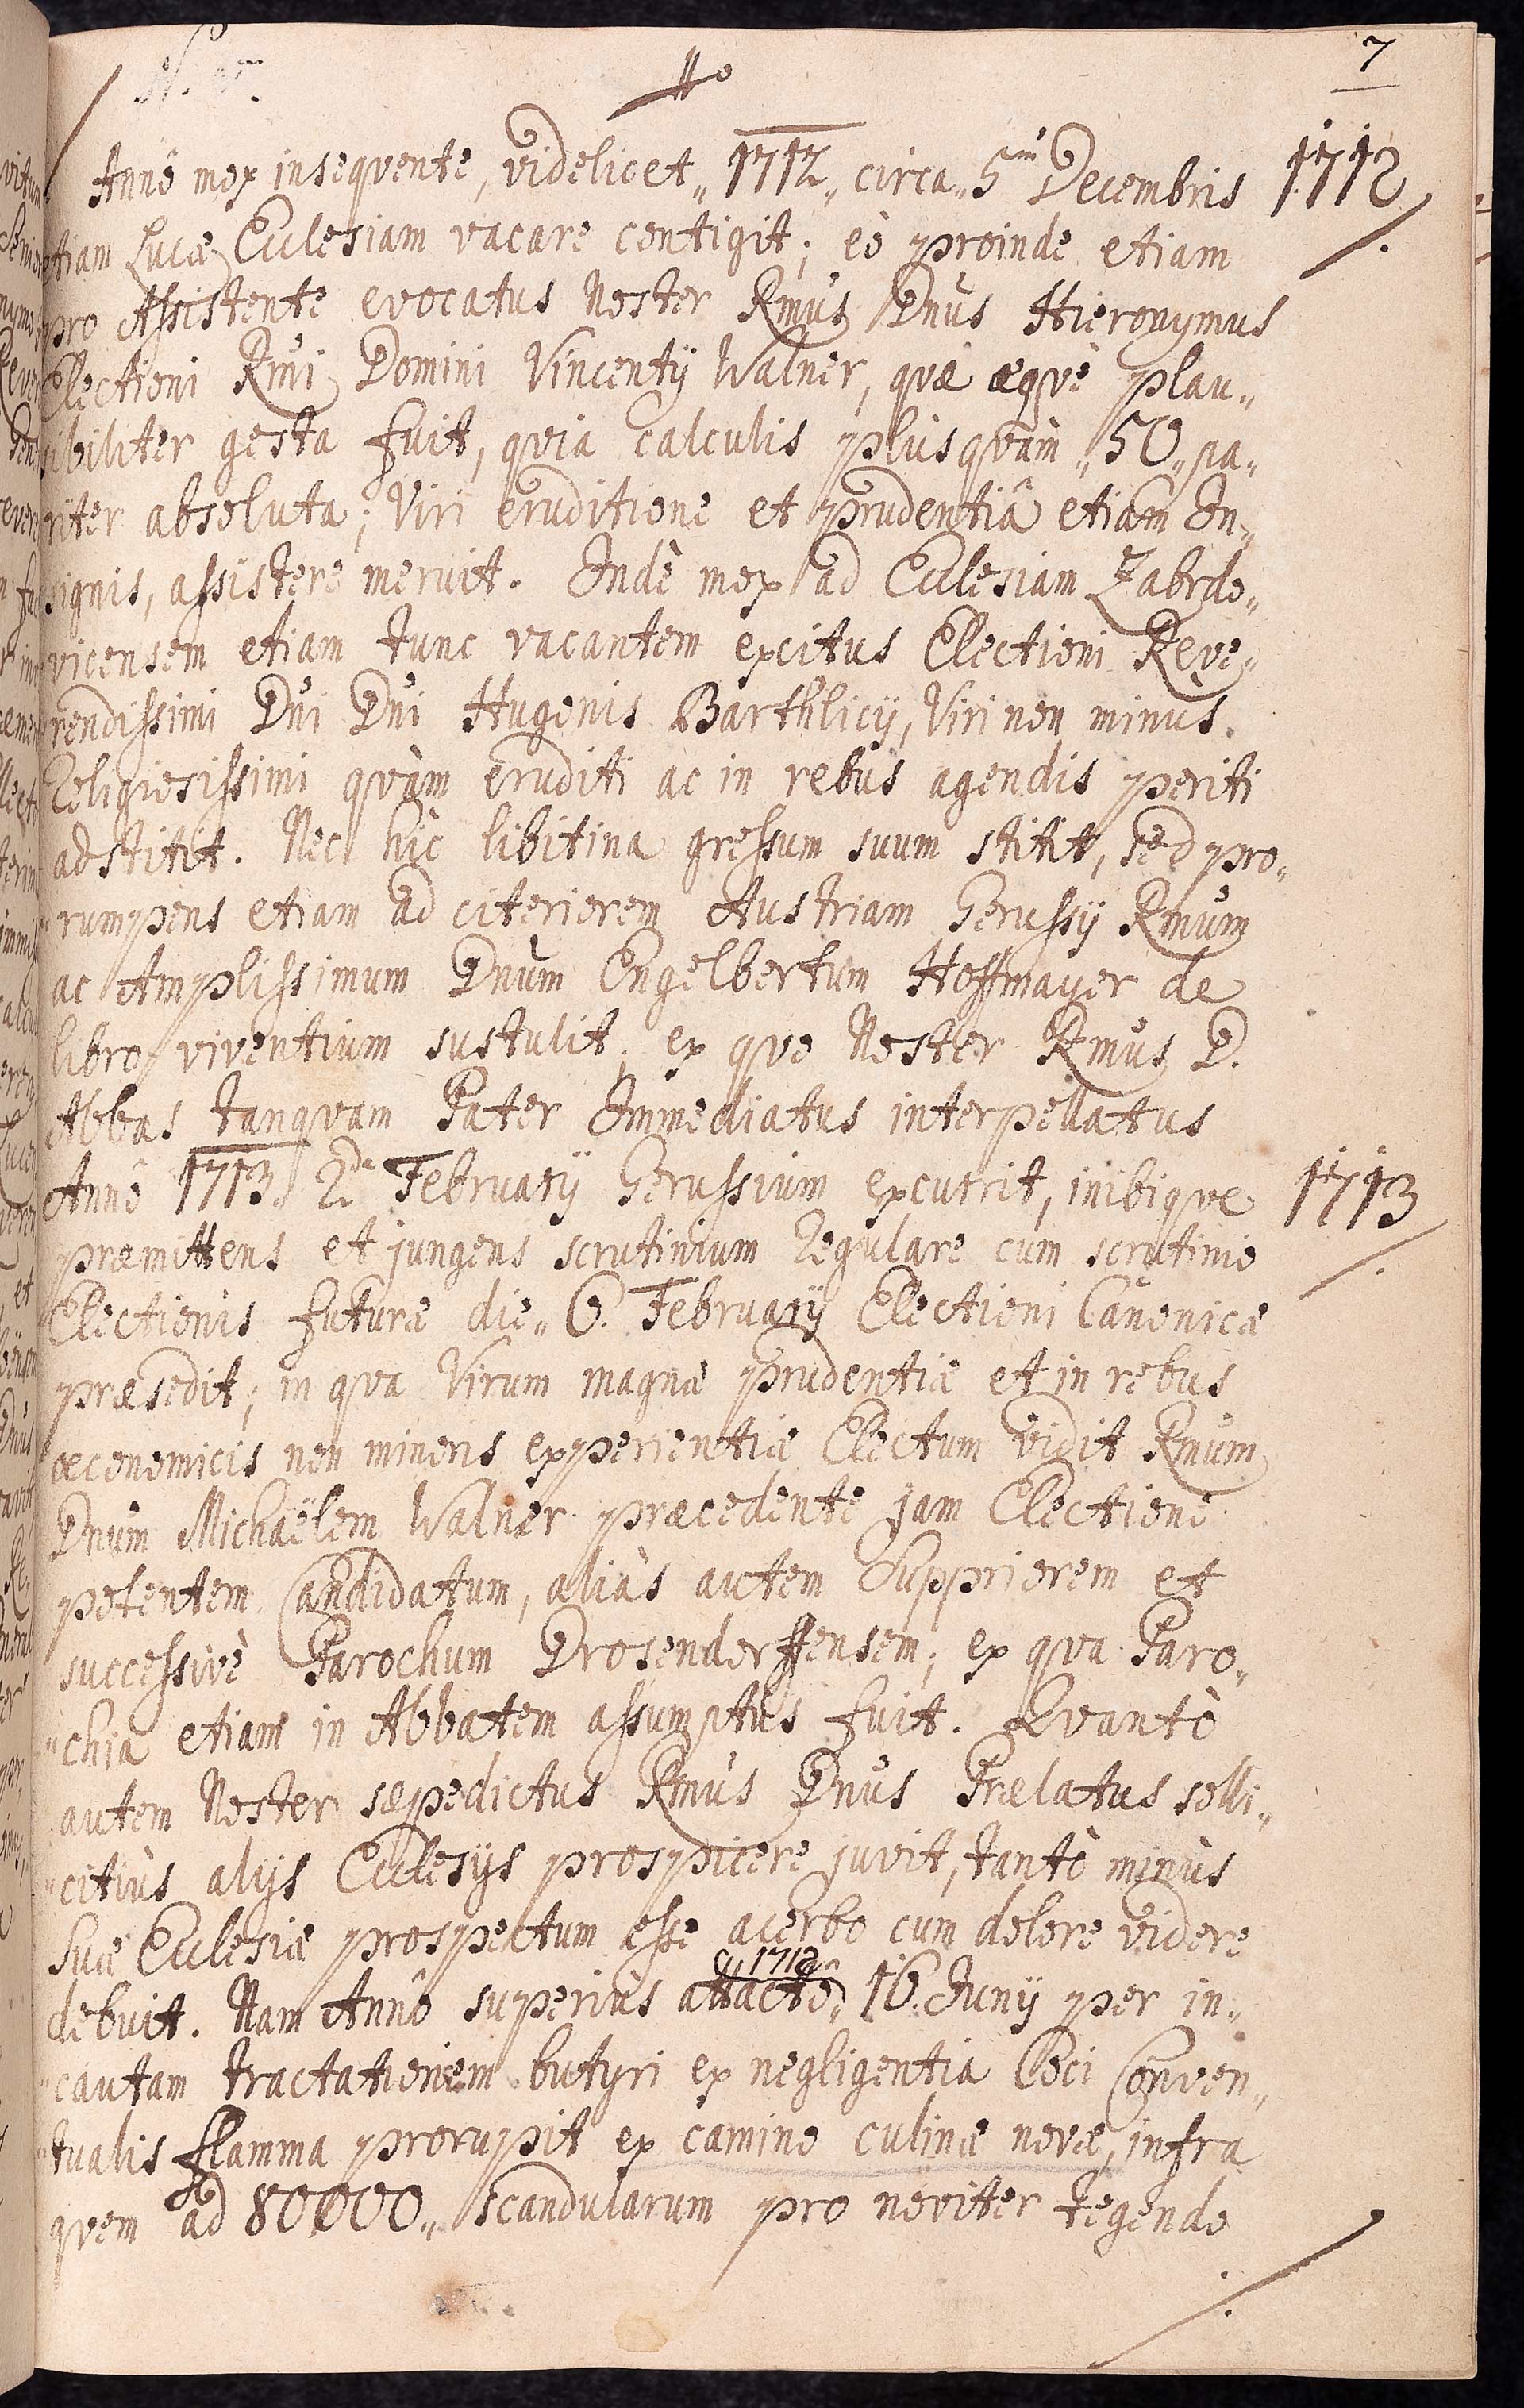 7
Annô mox insequente, videlicet „1712„ circa „5m Decembris
1712
etiam Lucæ Ecclesiam vacare contigit; eò proinde etiam
pro Assistente evocatus Noster Rmus Dnus Hieronymus
Electioni Rmi Domini Vincentÿ Walner, quæ æquè plau„
sibiliter gesta fuit, quia calculis plusquàm „50„ pa„
riter absoluta; Viri eruditione et prudentiâ etiam In„
signis, assistere meruit. Indè mox ad Ecclesiam Zabrdo„
vicensem etiam tunc vacantem excitus Electioni Reve„
rendissimi Dni Dni Hugonis Barthlicÿ, Viri non minùs
Religiosissimi quàm eruditi ac in rebus agendis periti
adstitit. Nec hìc libitina gressum suum stitit, sed pro„
„rumpens etiam ad citeriorem Austriam Gerussÿ Rmum
ac Amplissimum Dnum Engelbertum Hoffmayer de
libro viventium sustulit; ex quo Noster Rmus D.
Abbas tanquam Pater Immediatus interpellatus
Annô 1713. 2da Februarÿ Gerussium excurrit, inibique
1713
præmittens et jungens scrutinium Regulare cum scrutinio
Electionis futuræ die „6. Februarÿ Electioni Canonicæ
præsedit; in qua Virum magnæ prudentiæ et in rebus
œconomicis non minoris experientiæ Electum vidit Rmum
Dnum Michaëlem Walner præcedente jam Electione
potentem Candidatum, aliàs autem Suppriorem et
successivè Parochum Drosendorffensem; ex qua Paro„
„chia etiam in Abbatem assumptus fuit. Quantò
autem Noster sæpedictus Rmus Dnus Prælatus solli„
„citiùs alÿs Ecclesÿs prospicere juvit, tantò minùs
Suæ Ecclesiæ prospectum esse acerbo cum dolore videre
1712
debuit. Nam Annô superiùs attactô, 16. Junÿ per in„
„cautam tractationem butyri ex negligentia Coci Conven„
„tualis flamma prorupit ex camino culinæ novæ, infra
quem ad 80000„ scandularum pro noviter tegendo